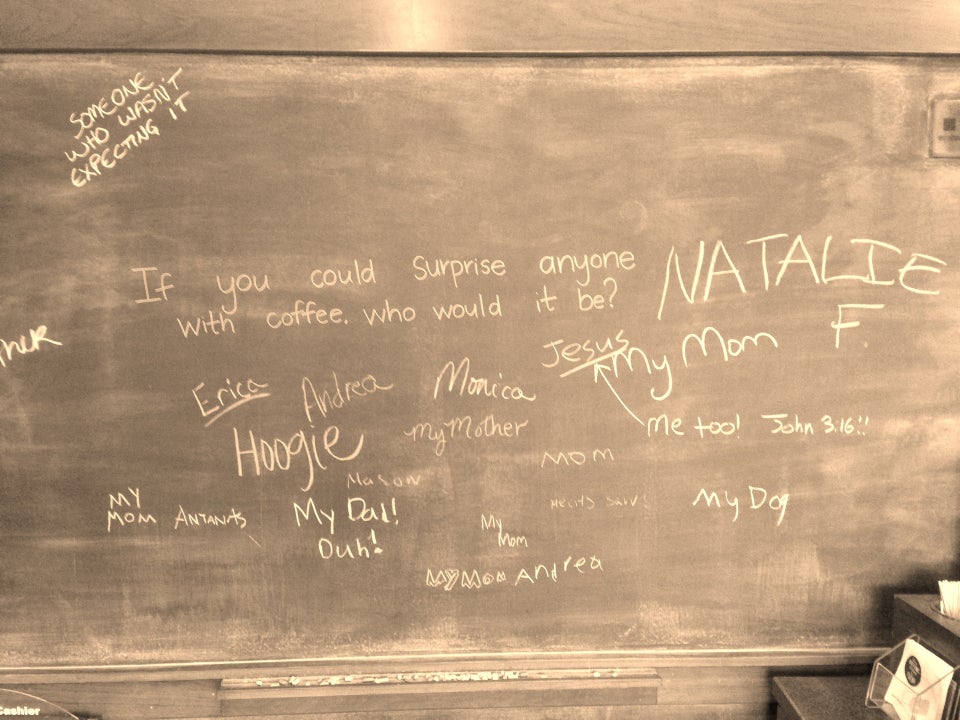 SOMEONE
WHO WASN'T
EXPECTING IT
If you could Surprise anyone
with coffee. who would it be?
NATALIE
F.
Jesus
My Mom
Erica
Andrea
Monica
me too! John 3:16!!
Hoogie
My Mother
MOM
Mason
MY
MOM
ANTANAS
My Dad!
Duh!
My
Mom
My Dog
MY MOM
Andrea
Cashier